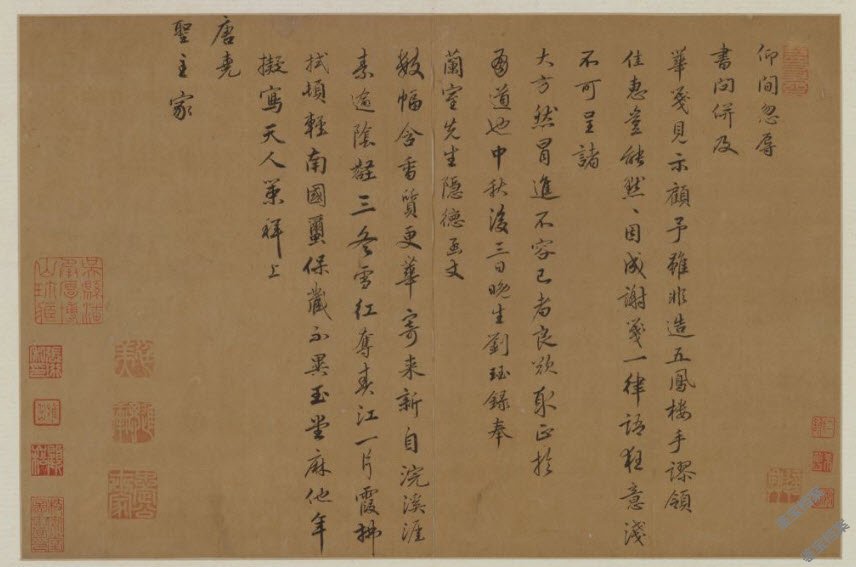 仰間忽辱
書問併及
華箋見示顧予雖非造五鳳樓手謬領
佳惠豈能默默因成謝箋一律語狂意淺
不可呈諸
大方然冒進不容已者良欲取正於
有道也中秋後三日晚生劉珏錄奉
蘭室先生隱德函丈
數幅含香質更華寄來新自浣溪涯
素逾陰壑三冬雪紅奪春江一片霞拂
拭頓輕南國繭保藏不異玉堂麻他年
擬寫天人策拜上
唐堯
聖主家